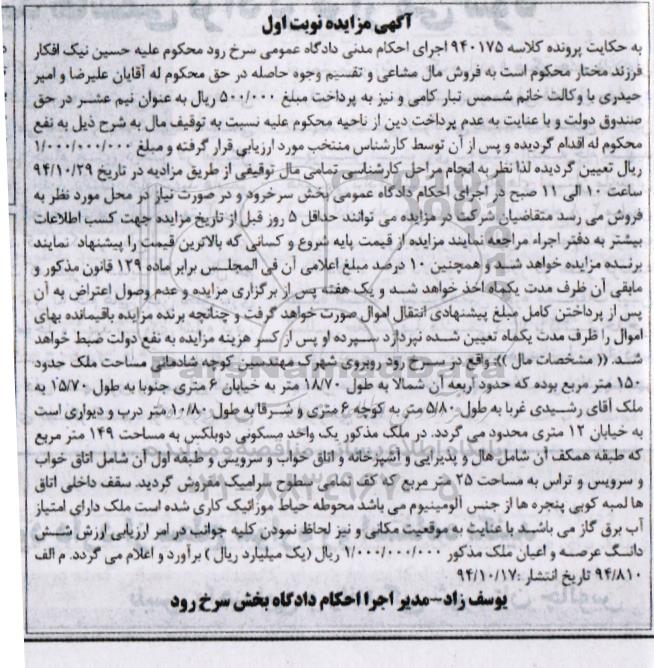 آگهی مزایده نوبت اول
به حکایت پرونده کلاسه ۹۴۰۱۷۵ اجرای احکام مدنی دادگاه عمومی سرخ رود محکوم علیه حسین نیک افکار
فرزند مختار محکوم است به فروش مال مشاعی و تقسیم وجوه حاصله در حق محکوم له آقایان علیرضا و امیر
حیدری با وکالت خانم شمس تبار کامی و نیز به پرداخت مبلغ ۵۰۰/۰۰۰ ریال به عنوان نیم عشر در حق
صندوق دولت و با عنایت به عدم پرداخت دین از ناحیه محکوم علیه نسبت به توقیف مال به شرح ذیل به نفع
محکوم له اقدام گردیده و پس از آن توسط کارشناس منتخب مورد ارزیابی قرار گرفته و مبلغ ۱/۰۰۰/۰۰۰/۰۰۰
ریال تعیین گردیده لذا نظر به انجام مراحل کارشناسی تمامی مال توقیفی از طریق مزادیه در تاریخ ۹۴/۱۰/۲۹
ساعت ۱۰ الی ۱۱ صبح در اجرای احکام دادگاه عمومی بخش سرخرود و در صورت نیاز در محل مورد نظر به
فروش می رسد متقاضیان شرکت در مزایده می توانند حداقل ۵ روز قبل از تاریخ مزایده جهت کسب اطلاعات
بیشتر به دفتر اجراء مراجعه نمایند مزایده از قیمت پایه شروع و کسانی که بالاترین قیمت را پیشنهاد نمایند
برنده مزایده خواهد شد و همچنین ۱۰ درصد مبلغ اعلامی آن فی المجلس برابر ماده ۱۲۹ قانون مذکور و
مابقی آن ظرف مدت یکماه اخذ خواهد شد و یک هفته پس از برگزاری مزایده و عدم وصول اعتراض به آن
پس از پرداختن کامل مبلغ پیشنهادی انتقال اموال صورت خواهد گرفت و چنانچه برنده مزایده باقیمانده بهای
اموال را ظرف مدت یکماه تعیین شده نپردازد سپرده او پس از کسر هزینه مزایده به نفع دولت ضبط خواهد
شد. (( مشخصات مال )): واقع در سرخ رود روبروی شهرک مهندسین کوچه شادهانی مساحت ملک حدود
۱۵۰ متر مربع بوده که حدود آربعه آن شمالا به طول ۱۸/۷۰ متر به خیابان ۶ متری جنوبا به طول ۱۵/۷۰ به
ملک آقای رشیدی غربا به طول ۵/۸۰ متر به کوچه ۶ متری و شرقا به طول ۱۰/۸۰ متر درب و دیواری است
به خیابان ۱۲ متری محدود می گردد. در ملک مذکور یک واحد مسکونی دوبلکس به مساحت ۱۴۹ متر مربع
که طبقه همکف آن شامل هال و پذیرایی و آشپزخانه و اتاق خواب و سرویس و طبقه اول آن شامل اتاق خواب
و سرویس و تراس به مساحت ۲۵ متر مربع که کف تمامی سطوح سرامیک مفروش گردید. سقف داخلی اتاق
ها لمبه کوبی پنجره ها از جنس آلومینیوم می باشد محوطه حیاط موزائیک کاری شده است ملک دارای امتیاز
آب برق گاز می باشد با عنایت به موقعیت مکانی و نیز لحاظ نمودن کلیه جوانب در امر ارزیابی ارزش شش
دانگ عرصه و اعیان ملک مذکور ۱/۰۰۰/۰۰۰/۰۰۰ ریال (یک میلیارد ریال ) برآورد و اعلام می گردد. م الف
۹۴/۸۱۰ تاریخ انتشار :۹۴/۱۰/۱۷
یوسف زاد-مدیر اجرا احکام دادگاه بخش سرخ رود